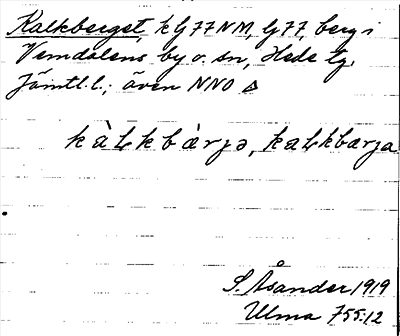 Kalkberget, k G77NM, G77, berg i
Vemdalens by o. sn, Hede tg.
Jämtl. l.; även NNO △
kàLkbàrjə, kaLkbarja
S. Åsander 1919
Ulma 755:12